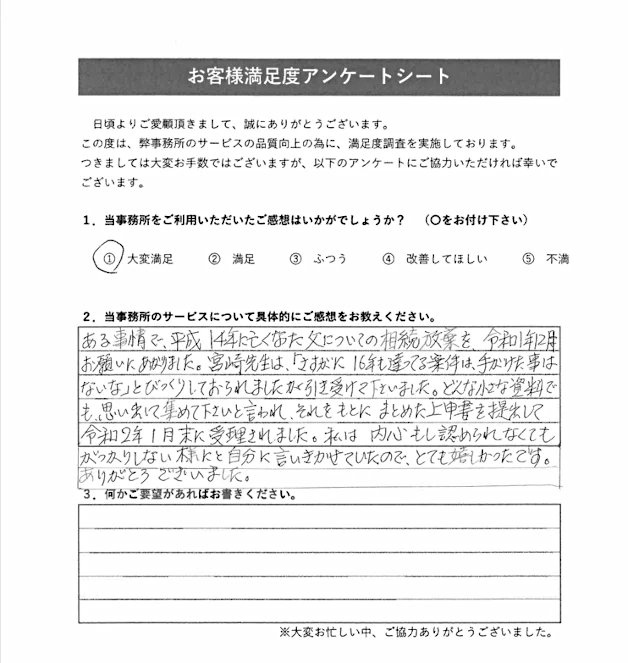 お客様満足度アンケートシート
日頃よりご愛顧頂きまして、誠にありがとうございます。
この度は、弊事務所のサービスの品質向上の為に、満足度調査を実施しております。
つきましては大変お手数ではございますが、以下のアンケートにご協力いただければ幸いで
ございます。
1．当事務所をご利用いただいたご感想はいかがでしょうか？　（〇をお付け下さい）
① 大変満足　② 満足　③ ふつう　④ 改善してほしい　⑤ 不満
2．当事務所のサービスについて具体的にご感想をお教えください。
ある事情で、平成14年に亡くなった父についての相続放棄を、令和1年12月
お願いにあがりました。宮崎先生は、「さすがに16年も違ってる案件は、手がけた事は
ないな」とびっくりしておられましたが引き受けて下さいました。どんな小さな資料で
も、思い出して集めて下さいと言われ、それをもとにまとめた上申書を提出して
令和2年1月末に受理されました。私は内心もし認められなくても
がっかりしない様にと自分に言いきかせていたので、とても嬉しかったです。
ありがとうございました。
3．何かご要望があればお書きください。
※大変お忙しい中、ご協力ありがとうございました。